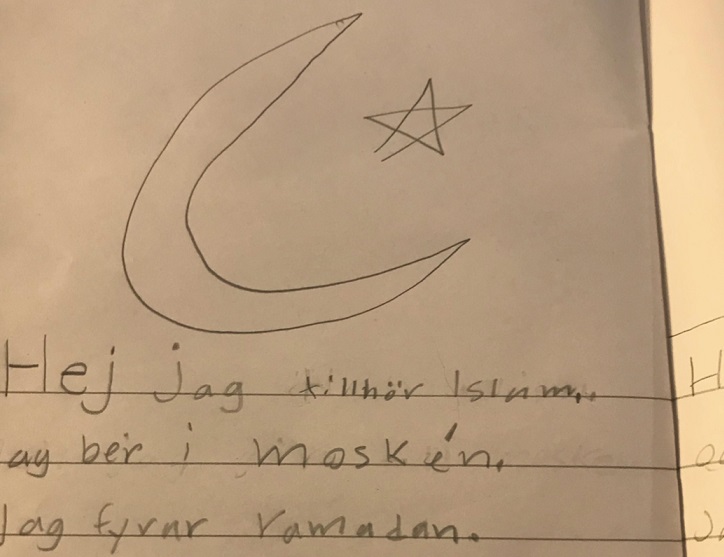 Hej jag tillhör Islam.
ag ber i moskén.
Jag fyrar ramadan.
H